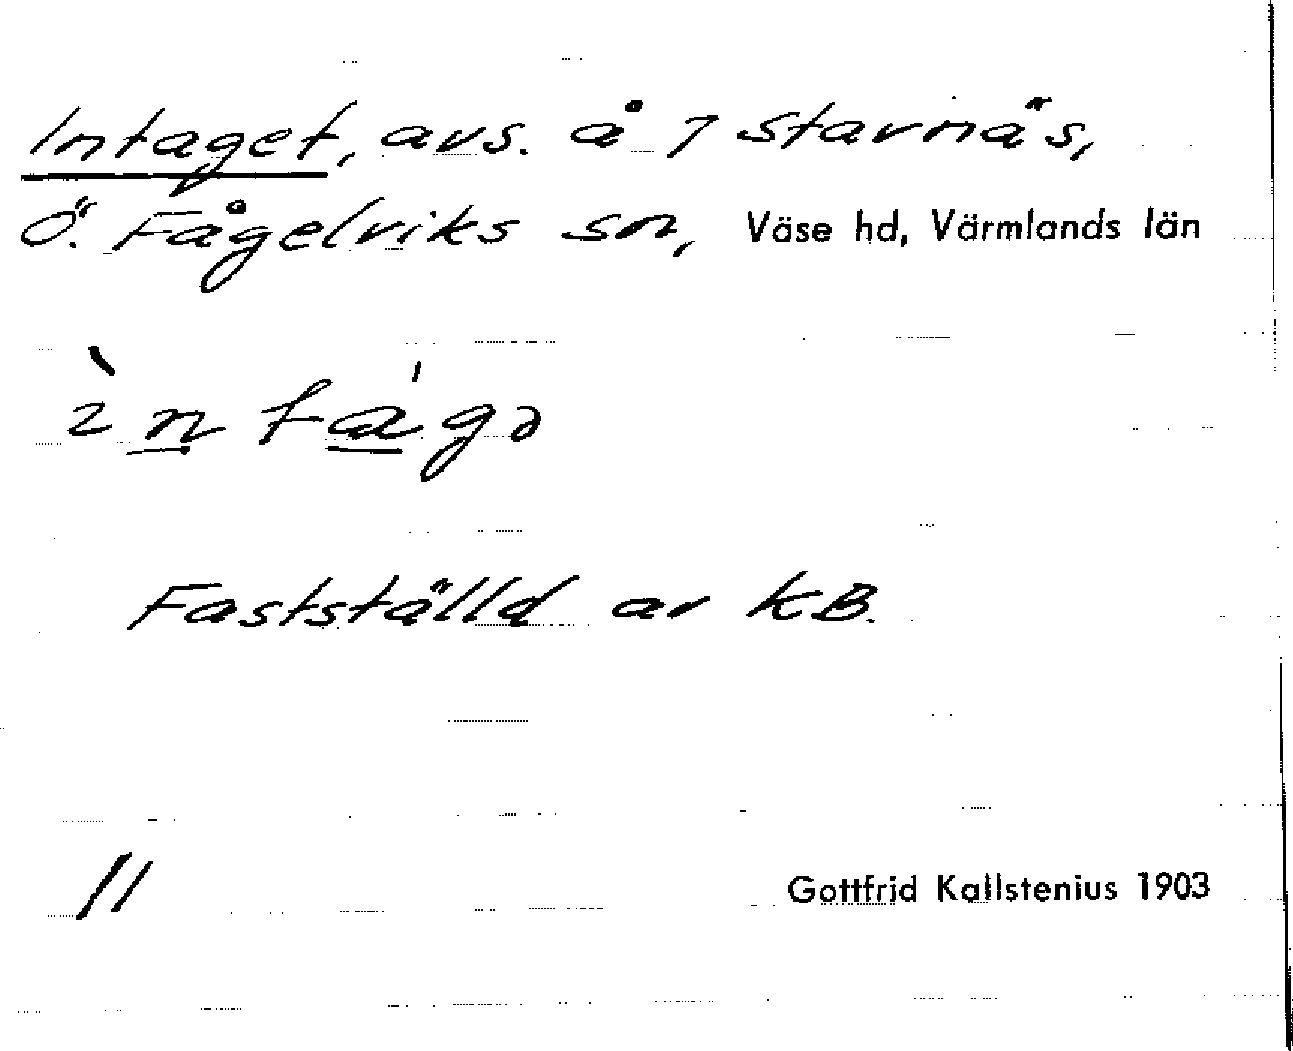 Intaget, avs. å 7 Stavnäs,
Ö. Fågelviks sn, Väse hd, Värmlands län
ìntágə
Fastställd av KB.
11 Gottfrid Kallstenius 1903